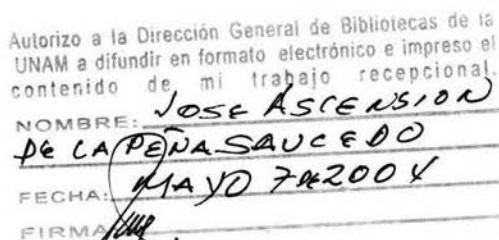 Autorizo a la Dirección General de Bibliotecas de la
UNAM a difundir en formato electrónico e impreso el
contenido de mi trabajo recepcional.
NOMBRE: JOSE ASCENSION
DE LA PEÑA SAUCEDO
FECHA: MAYO 7 DE 2004
FIRMA